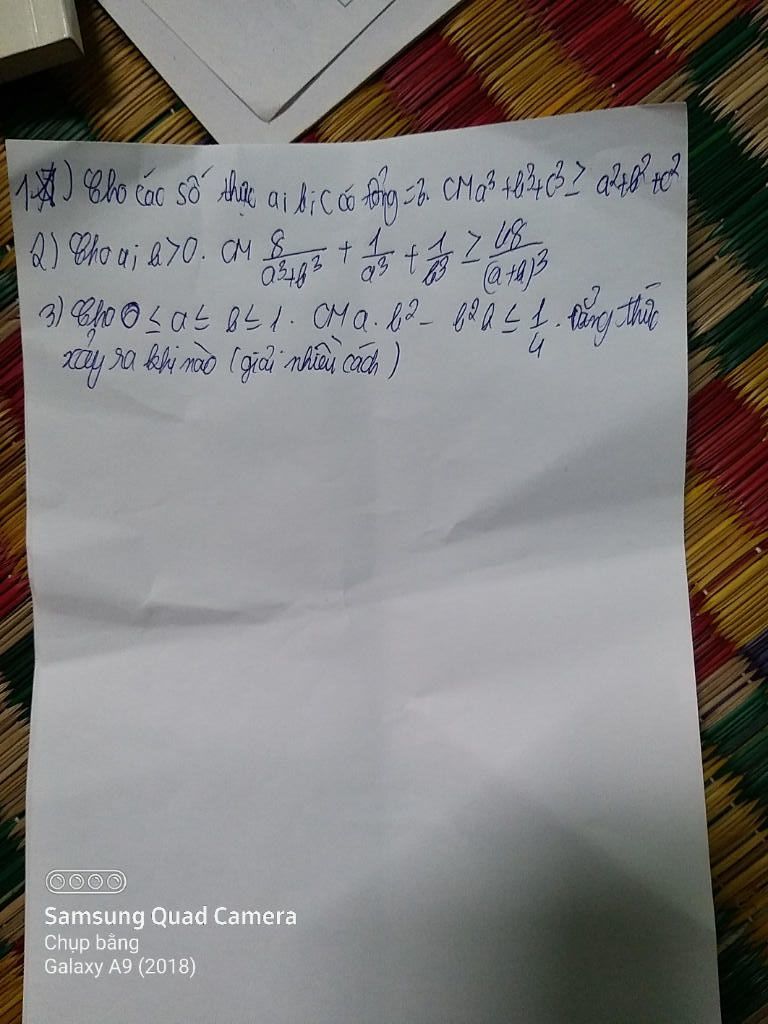 1) Cho các số thực a; b; c có tổng = 3. CM a³ + b³ + c³ ≥ a² + b² + c²
2) Cho a; b > 0. CM 8/(a³+b³) + 1/a³ + 1/b³ ≥ 48/(a+b)³
3) Cho 0 ≤ a ≤ b ≤ 1. CM a.b² - b²b ≤ 1/4. Đẳng thức
xảy ra khi nào (giải nhiều cách)
Samsung Quad Camera
Chụp bằng
Galaxy A9 (2018)